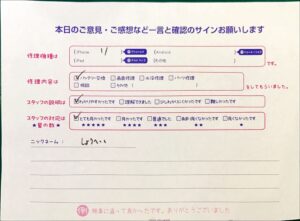 本日のご意見・ご感想など一言と確認のサインお願いします
修理機種は
iPhone 11
iPad
Android
その他
です。
修理内容は
バッテリー交換 画面修理 水没修理 パーツ修理
相談 その他
をしてもらいました。
スタッフの説明は
わかりやすかったです 理解できました 少しわかりにくかったです 難しかったです
スタッフの対応は
とても良かったです 良かったです 普通でした 良くなかったです
★星の数★
★★★★★ ★★★★ ★★★ ★★ ★
ニックネーム:
修理に出して良かったです。ありがとうございました